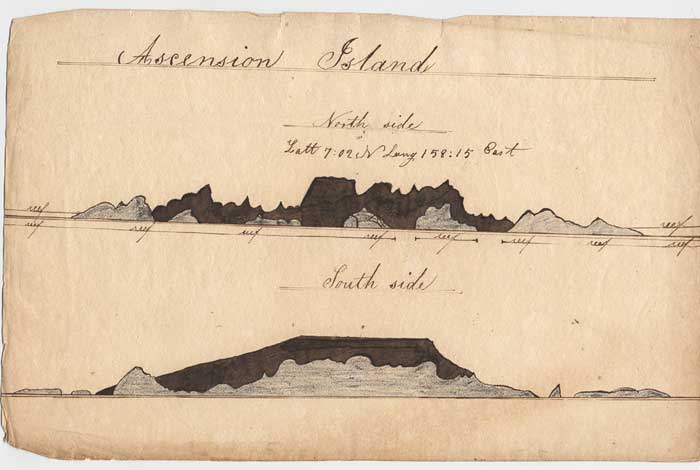 Ascension Island
North side
Latt 7:02 N Long 158:15 East
reef reef
reef reef reef reef reef reef reef
South side